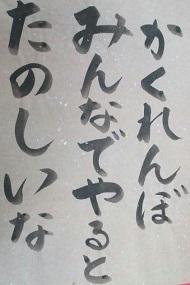 かくれんぼ
みんなでやると
たのしいな